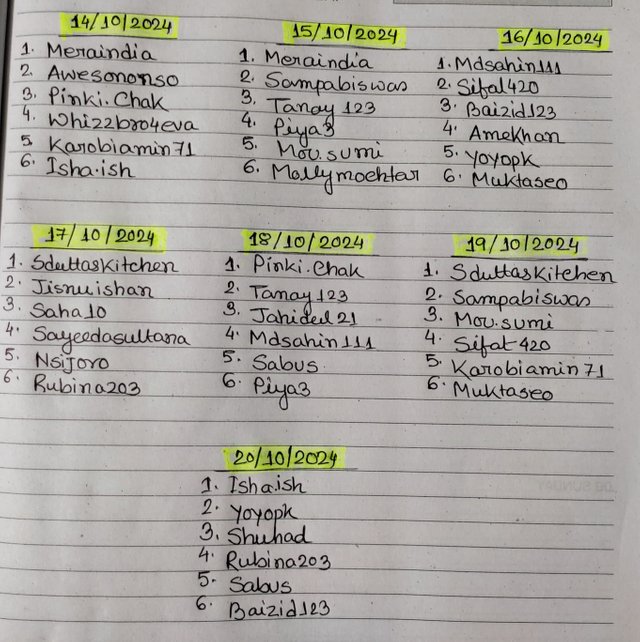 14/10/2024
1. Meraindia
2. Awesononso
3. Pinki.Chak
4. Whizzbro4eva
5. Karobiamin71
6. Isha.ish
15/10/2024
1. Meraindia
2. Sampabiswas
3. Tanay123
4. Piya3
5. Mou.sumi
6. Mollymochtar
16/10/2024
1. Mdsahin111
2. Sifat420
3. Baizid123
4. Amekhan
5. Yoyopk
6. Muktaseo
17/10/2024
1. Sduttaskitchen
2. Jisnuishan
3. Saha10
4. Sayeedasultana
5. Nsijoro
6. Rubina203
18/10/2024
1. Pinki.Chak
2. Tanay123
3. Jahidul21
4. Mdsahin111
5. Sabus
6. Piya3
19/10/2024
1. Sduttaskitchen
2. Sampabiswas
3. Mou.sumi
4. Sifat420
5. Karobiamin71
6. Muktaseo
20/10/2024
1. Isha.ish
2. Yoyopk
3. Shuhad
4. Rubina203
5. Sabus
6. Baizid123